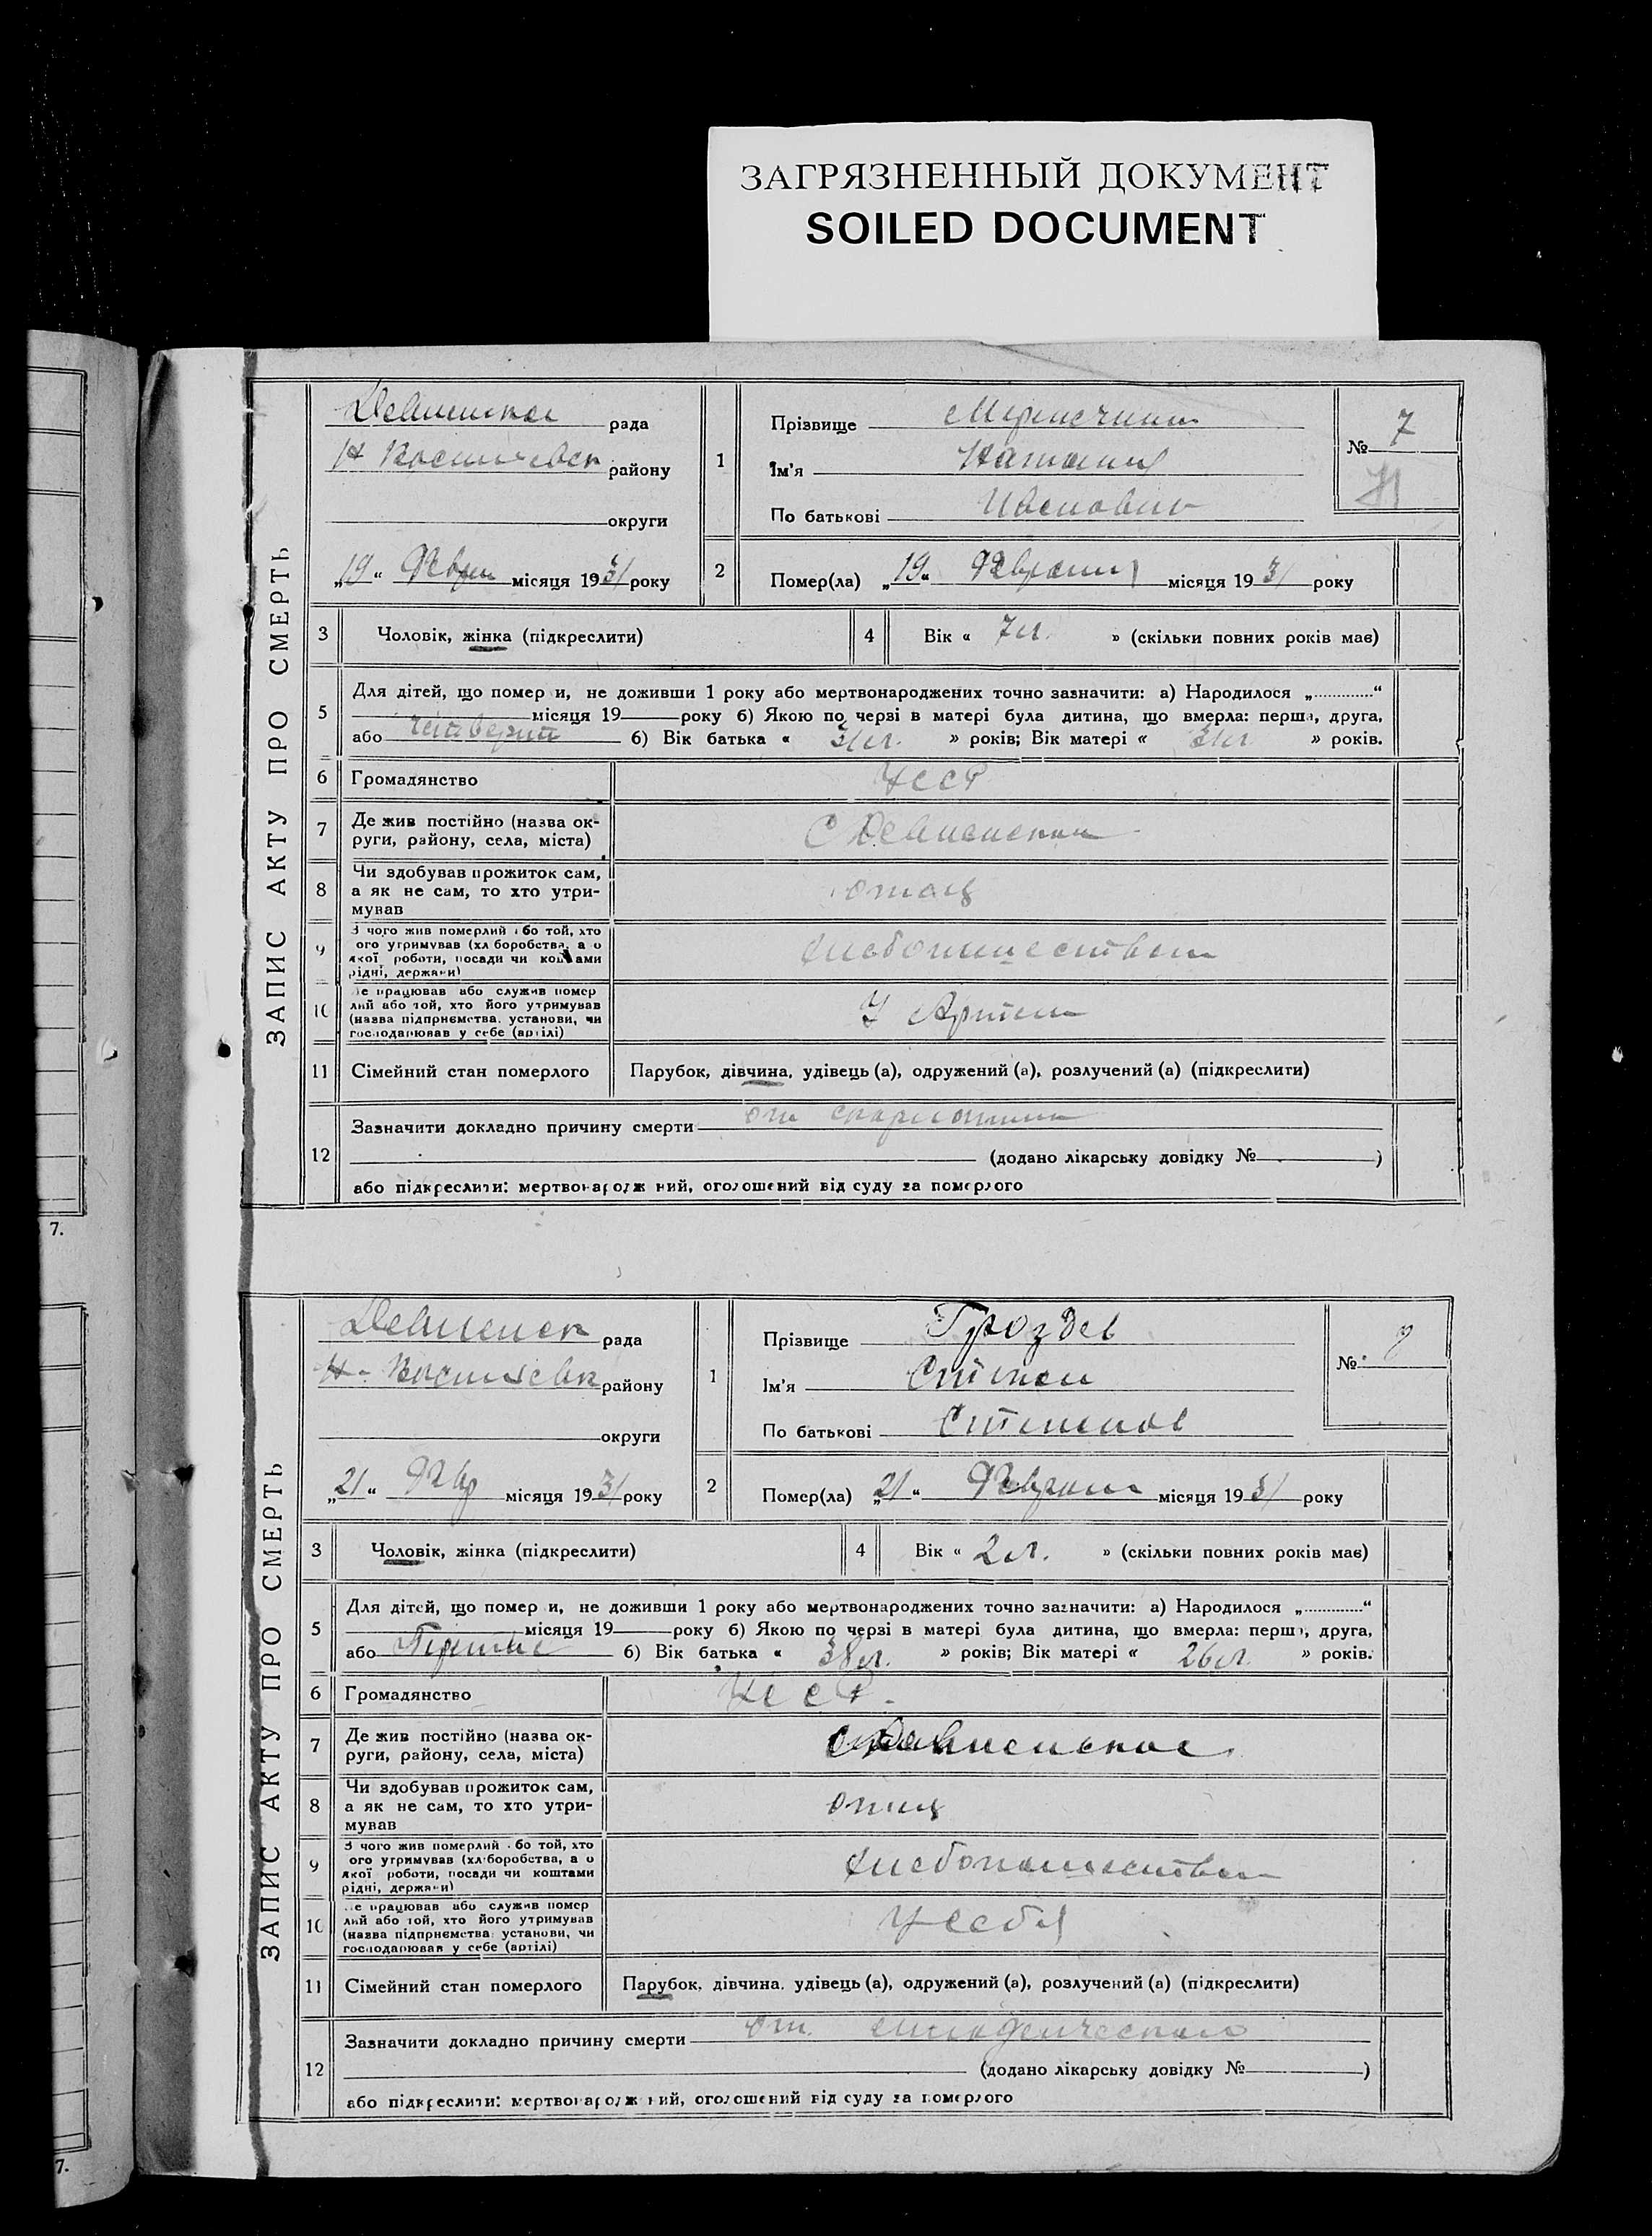 ЗАГРЯЗНЕННЫЙ ДОКУМЕНТ
SOILED DOCUMENT
ЗАПИС АКТУ ПРО СМЕРТЬ
рада
району
округи
„19“ Февр місяця 1931 року
1
Прізвище
Ім'я Наталия
По батькові Ивановна
№ 7
2
Помер(ла) „19“ Февраля місяця 1931 року
3 Чоловік, жінка (підкреслити)
4 Вік « 7 л. » (скільки повних років має)
5
Для дітей, що помер и, не доживши 1 року або мертвонароджених точно зазначити: а) Народилося „............“
місяця 19 року б) Якою по черзі в матері була дитина, що вмерла: перша, друга,
або б) Вік батька « 31 л. » років; Вік матері « 31 л » років.
6 Громадянство УССР
7 Де жив постійно (назва ок-
руги, району, села, міста)
8 Чи здобував прожиток сам,
а як не сам, то хто утри-
мував
отец
9 З чого жив померлий або той, хто
ого утримував (хл боробства, а о
якої роботи, посади чи коштами
рідні, держави)
хлебопашеством
10 е працював або служив помер
лий або той, хто його утримував
(назва підприємства, установи, чи
господарював у себе (артілі)
У Артели
11 Сімейний стан померлого Парубок, дівчина, удівець (а), одружений (а), розлучений (а) (підкреслити)
12
Зазначити докладно причину смерти от скарлатины
(додано лікарську довідку № )
або підкреслити: мертвонародж ний, оголошений від суду за померлого
7.
ЗАПИС АКТУ ПРО СМЕРТЬ
рада
району
округи
„21“ Февр місяця 1931 року
1
Прізвище Гроздев
Ім'я Степан
По батькові Степанов
№ 8
2
Помер(ла) „21“ Февраля місяця 1931 року
3 Чоловік, жінка (підкреслити)
4 Вік « 2 л. » (скільки повних років має)
5
Для дітей, що помер и, не доживши 1 року або мертвонароджених точно зазначити: а) Народилося „............“
місяця 19 року б) Якою по черзі в матері була дитина, що вмерла: перша, друга,
або б) Вік батька « 38 л. » років; Вік матері « 26 л. » років.
6 Громадянство УССР.
7 Де жив постійно (назва ок-
руги, району, села, міста)
8 Чи здобував прожиток сам,
а як не сам, то хто утри-
мував
отец
9 З чого жив померлий або той, хто
ого утримував (хл боробства, а о
якої роботи, посади чи коштами
рідні, держави)
хлебопашеством
10 е працював або служив помер
лий або той, хто його утримував
(назва підприємства, установи, чи
господарював у себе (артілі)
У себя
11 Сімейний стан померлого Парубок, дівчина, удівець (а), одружений (а), розлучений (а) (підкреслити)
12
Зазначити докладно причину смерти от
(додано лікарську довідку № )
або підкреслити: мертвонародж ний, оголошений від суду за померлого
7.